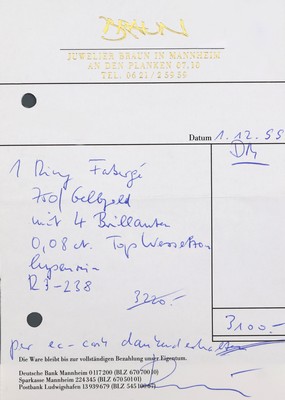 BRAUN
JUWELIER BRAUN IN MANNHEIM
AN DEN PLANKEN O7,10
TEL. 0621/2 56 56
Datum 1.12.99
DM
1 Ring Fabergé
750/ Gelbgold
mit 4 Brillanten
0,08 ct. Top Wesselton
lupenrein
R3-238
3220.-
3100.-
per ec-cash dankend erhalten
Die Ware bleibt bis zur vollständigen Bezahlung unser Eigentum.
Deutsche Bank Mannheim 0 117 200 (BLZ 670 700 10)
Sparkasse Mannheim 224 345 (BLZ 670 501 01)
Postbank Ludwigshafen 13 939 679 (BLZ 545 100 67)